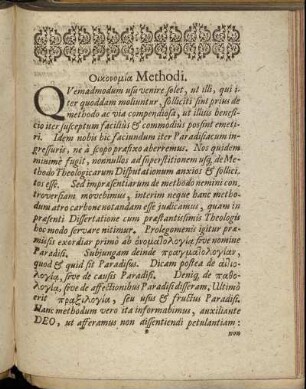 Οικονομία Methodi.
QVemadmodum usu venire solet, ut illi, qui i-
ter quoddam moliuntur, solliciti sint prius de
methodo ac via compendiosa, ut illius benefi-
cio iter susceptum facilius & commodius possint emeti-
ri. Idem nobis hic faciundum iter Paradisiacum in-
gressuris, ne à scopo præfixo aberremus. Nos quidem
minimè fugit, nonnullos ad superstitionem usq, de Me-
thodo Theologicarum Disputationum anxios & sollici-
tos esse. Sed impræsentiarum de methodo nemini con-
troversiam movebimus, interim neque hanc metho-
dum atro carbone notandam esse judicamus, quam in
præsenti Dissertatione cum præstantissimis Theologis
hoc modo servare nitimur. Prolegomenis igitur præ-
missis exordiar primò ab ὀνοματολογίᾳ, sive nomine
Paradisi. Subjungam deinde πραγματολογίαν,
quod & quid sit Paradisus. Dicam postea de αἰτιο-
λογίᾳ, sive de causis Paradisi. Deniq, de παθο-
λογίᾳ, sive de affectionibus Paradisi disseram, Ultimò
erit πραξιλογία, seu usus & fructus Paradisi.
Hanc methodum vero ita informabimus, auxiliante
DEO, ut afferamus non dissentiendi petulantiam:
non